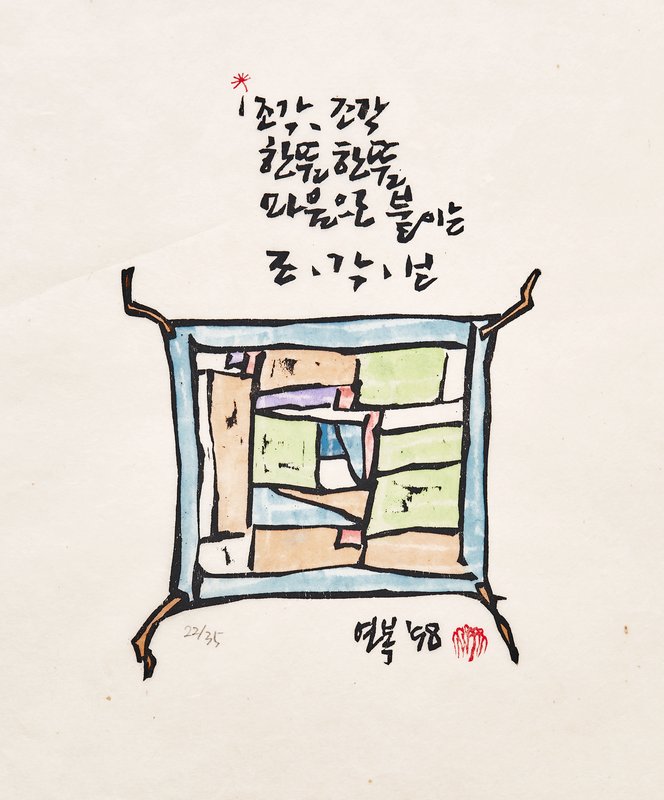 조각、조각
한뜸 한뜸
마음으로 붙이는
조、각、보
22/35
연복 '98